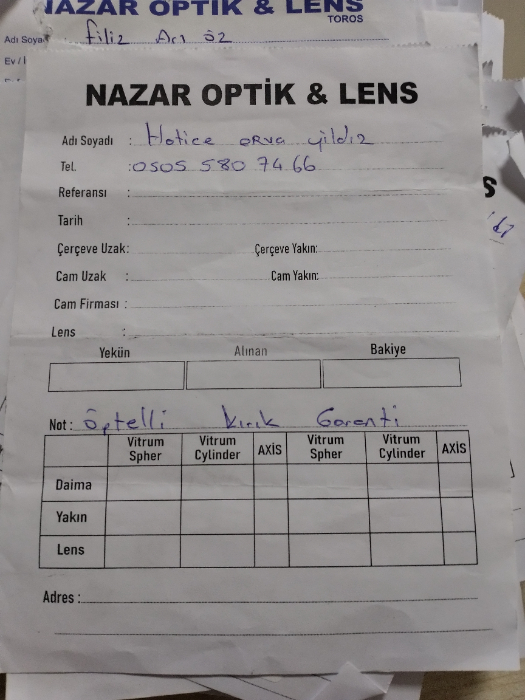 NAZAR OPTİK & LENS
TOROS
Adı Soyadı Filiz Arı öz
Ev /
NAZAR OPTİK & LENS
Adı Soyadı : Hatice erva yildiz
Tel. : 0505 580 74 66
Referansı :
Tarih :
Çerçeve Uzak: Çerçeve Yakın:
Cam Uzak : Cam Yakın:
Cam Firması :
Lens :
Yekün Alınan Bakiye
Not : Optelli kırık Garanti
Vitrum Spher Vitrum Cylinder AXİS Vitrum Spher Vitrum Cylinder AXİS
Daima
Yakın
Lens
Adres :